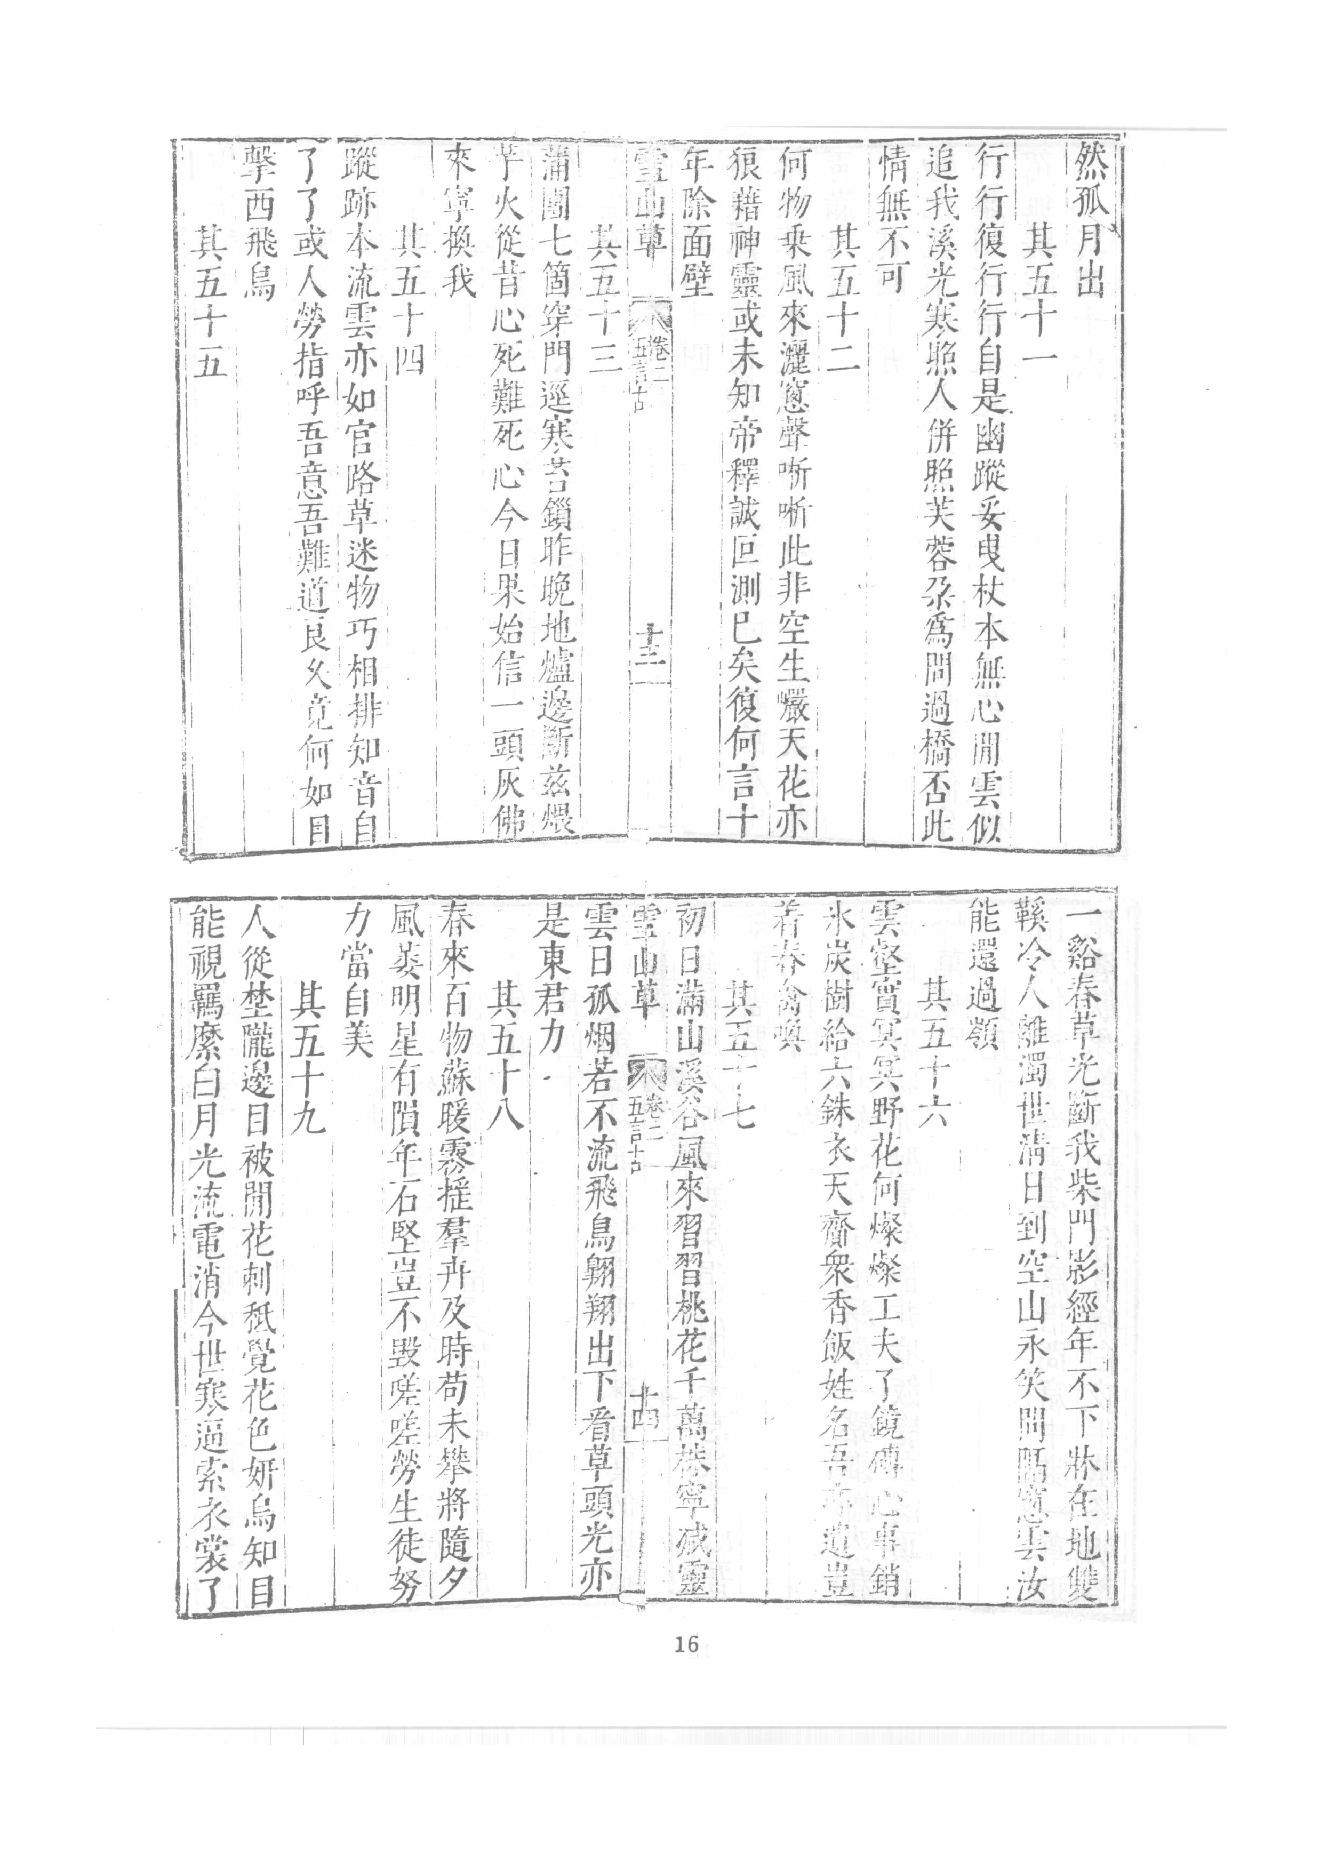 然孤月出
其五十一
行行復行行自是幽蹤妥曳杖本無心閒雲似
追我溪光寒照人併照芙蓉朶爲問過橋否此
情無不可
其五十二
何物乗風來灑窻聲哳哳此非空生巖天花亦
狼藉神靈或未知帝釋誠叵測已矣復何言十
年除面壁
雪山草 卷二 五言古 十三
其五十三
蒲團七箇穿門逕寒苔鎖昨晚地爐邊斷兹煨
芋火從昔心死難死心今日果始信一頭灰佛
來寧換我
其五十四
蹤跡本流雲亦如官路草迷物巧相排知音自
了了或人勞指呼吾意吾難道良久竟何如目
擊西飛鳥
其五十五
一谿春草光斷我柴門影經年不下牀在地雙
鞵冷人離濁世清日到空山永笑問隔窻雲汝
能還過嶺
其五十六
雲壑實冥冥野花何燦燦工夫了鏡磚心事銷
氷炭樹給六銖衣天齎衆香飯姓名吾亦遺豈
着春禽喚
其五十七
初日滿山溪谷風來習習桃花千萬株寧減靈
雪山草 卷二 五言古 十四
雲日孤烟若不流飛鳥翺翔出下看草頭光亦
是東君力
其五十八
春來百物蘇暖霧搖羣卉及時苟未攀將隨夕
風萎明星有隕年石堅豈不毀嗟嗟勞生徒努
力當自美
其五十九
人從埜隴邊目被閒花刺秪覺花色妍烏知目
能視羈縻白月光流電消今世寒逼索衣裳了
16